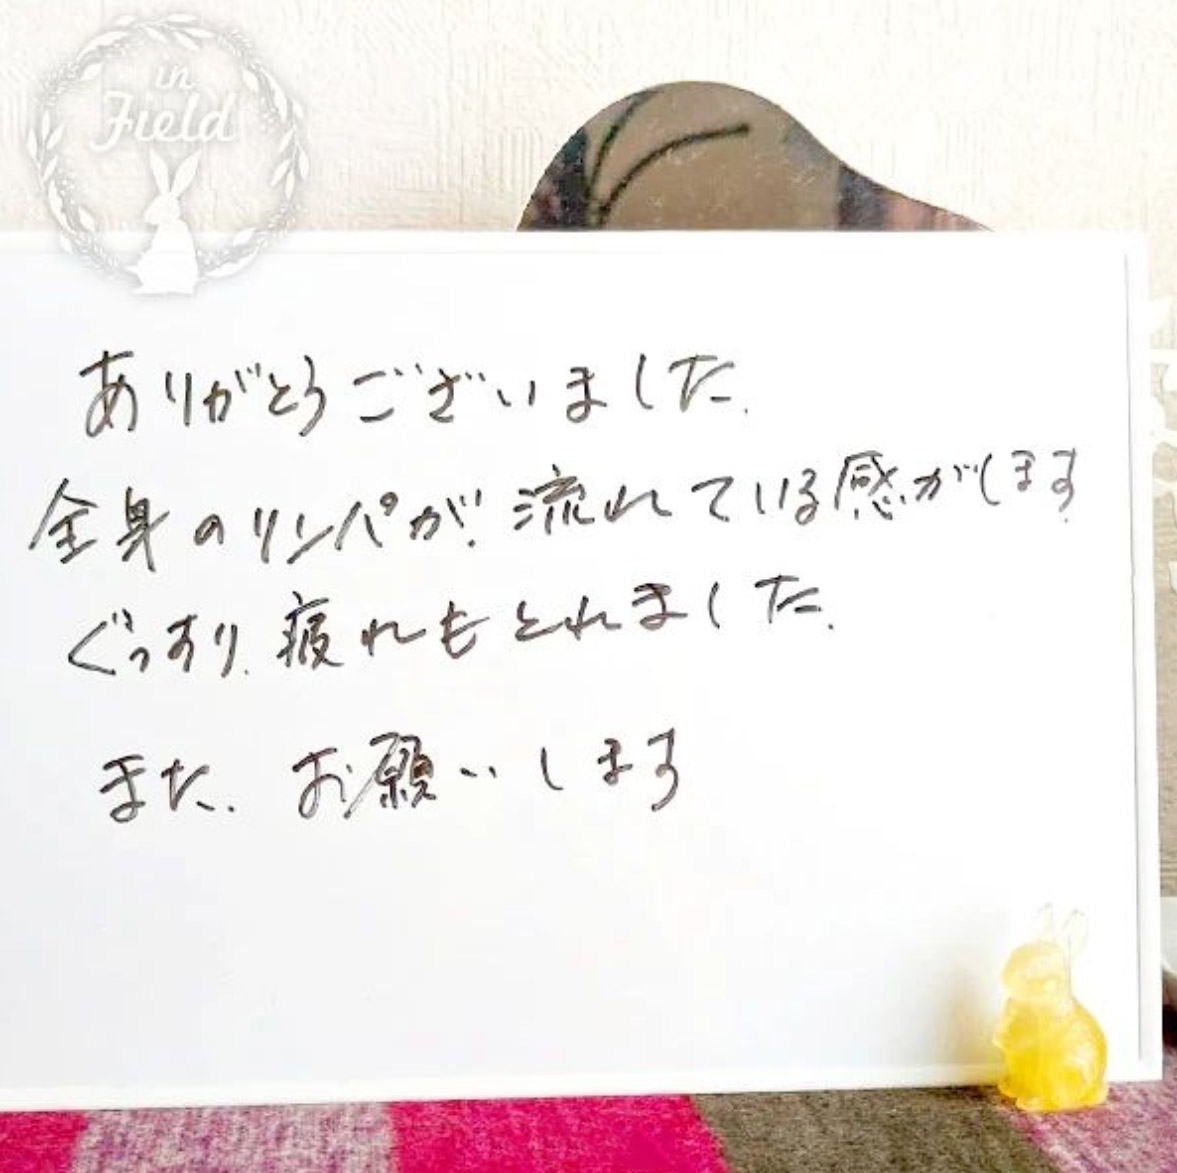 in
Field
ありがとうございました.
全身のリンパが流れている感がします
ぐっすり.疲れもとれました.
また.お願いします